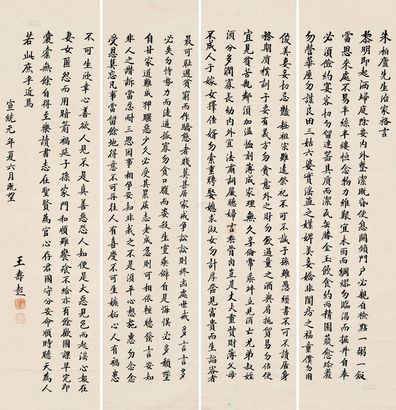 朱柏廬先生治家格言
黎明即起灑掃庭除要內外整潔既昏便息關鎖門戶必親自檢點一粥一飯
當思來處不易半絲半縷恆念物力維艱宜未雨而綢繆勿臨渴而掘井自奉
必須儉約宴客切勿留連器具質而潔瓦缶勝金玉飲食約而精園蔬愈珍饈
勿營華屋勿謀良田三姑六婆實淫盜之媒婢美妾嬌非閨房之福童僕勿用
俊美妻妾切忌豔粧祖宗雖遠祭祀不可不誠子孫雖愚經書不可不讀居身
務期質樸訓子要有義方勿貪意外之財勿飲過量之酒與肩挑貿易勿佔便
宜見貧苦親鄰須加溫恤刻薄成家理無久享倫常乖舛立見消亡兄弟叔姪
須分多潤寡長幼內外宜法肅詞嚴聽婦言乖骨肉豈是丈夫重貲財薄父母
不成人子嫁女擇佳婿勿索重聘娶媳求淑女勿計厚奩見富貴而生諂容者
最可恥遇貧窮而作驕態者賤莫甚居家戒爭訟訟則終凶處世戒多言言多
必失勿恃勢力而凌逼孤寡勿貪口腹而恣殺生靈乖僻自是悔悞必多頹墮
自甘家道難成狎暱惡少久必受其累屈志老成急則可相依輕聽發言安知
非人之譖訴當忍耐三思因事相爭安知非我之不是須平心施惠勿念
受恩莫忘凡事當留餘地得意不可再往人有喜慶不可生妒忌心人有禍患
不可生欣幸心善欲人見不是真善惡恐人知便是大惡見色而起淫心報在
妻女匿怨而用暗箭禍延子孫家門和順雖饔飧不給亦有餘歡國課早完即
囊橐無餘自得至樂讀書志在聖賢為官心存君國守分安命順時聽天為人
若此庶乎近焉
宣統元年夏六月既望
王壽彭